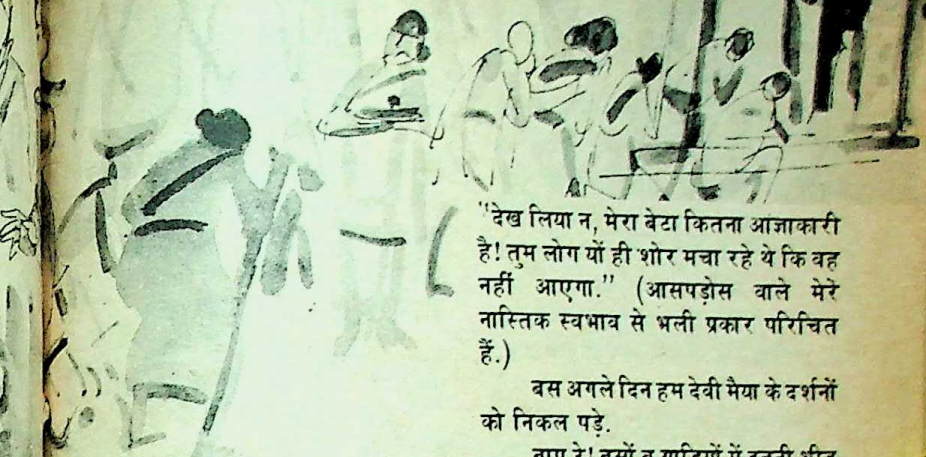 "देख लिया न, मेरा बेटा कितना आज्ञाकारी
है! तुम लोग यों ही शोर मचा रहे थे कि वह
नहीं आएगा." (आसपड़ोस वाले मेरे
नास्तिक स्वभाव से भली प्रकार परिचित
हैं.)
बस अगले दिन हम देवी मैया के दर्शनों
को निकल पड़े.